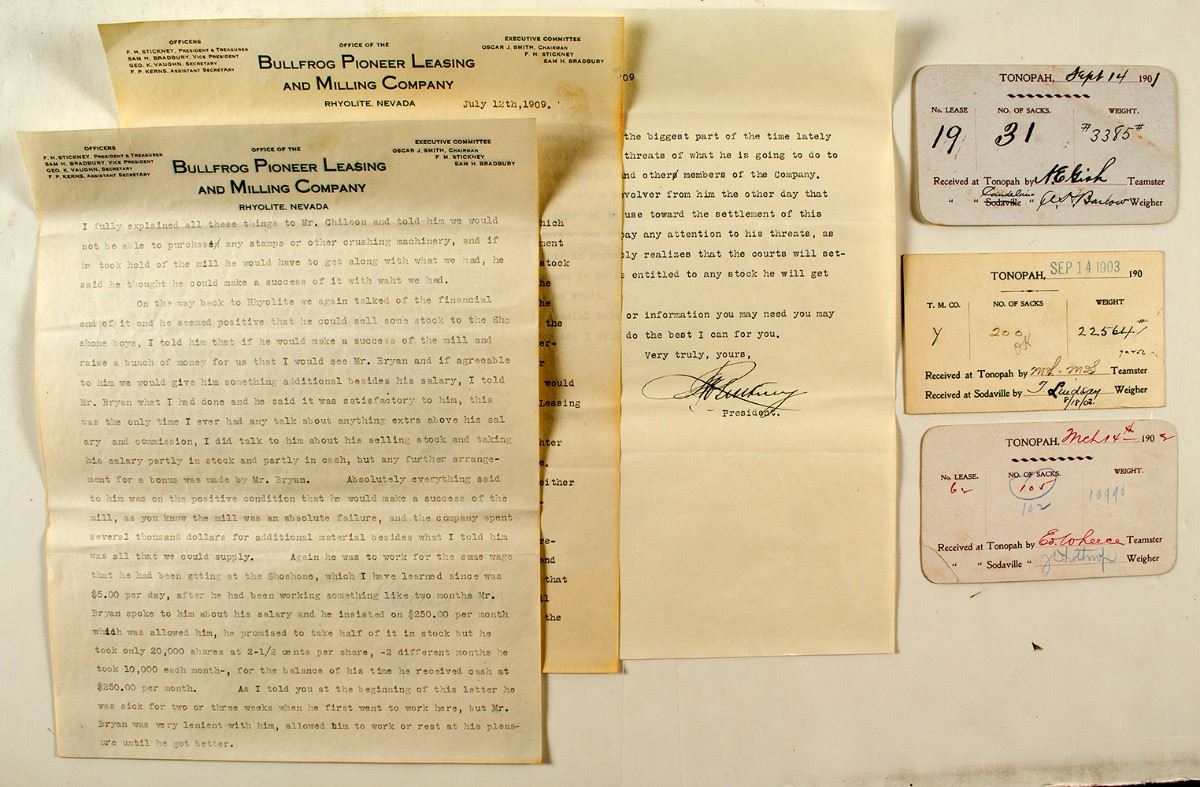 OFFICERS
F. H. STICKNEY, PRESIDENT & TREASURER
SAM H. BRADBURY, VICE PRESIDENT
GEO. K. VAUGHN, SECRETARY
F. P. KERNS, ASSISTANT SECRETARY
OFFICE OF THE
BULLFROG PIONEER LEASING
AND MILLING COMPANY
RHYOLITE, NEVADA
EXECUTIVE COMMITTEE
OSCAR J. SMITH, CHAIRMAN
F. H. STICKNEY
SAM H. BRADBURY
July 12th, 1909.
OFFICERS
F. H. STICKNEY, PRESIDENT & TREASURER
SAM H. BRADBURY, VICE PRESIDENT
GEO. K. VAUGHN, SECRETARY
F. P. KERNS, ASSISTANT SECRETARY
OFFICE OF THE
BULLFROG PIONEER LEASING
AND MILLING COMPANY
RHYOLITE, NEVADA
EXECUTIVE COMMITTEE
OSCAR J. SMITH, CHAIRMAN
F. H. STICKNEY
SAM H. BRADBURY
I fully explained all these things to Mr. Chilson and told him we would
not be able to purchase any stamps or other crushing machinery, and if
he took hold of the mill he would have to get along with what we had, he
said he thought he could make a success of it with waht we had.
On the way back to Rhyolite we again talked of the financial
end of it and he seemed positive that he could sell some stock to the Sho
shone boys, I told him that if he would make a success of the mill and
raise a bunch of money for us that I would see Mr. Bryan and if agreeable
to him we would give him something additional besides his salary, I told
Mr. Bryan what I had done and he said it was satisfactory to him, this
was the only time I ever had any talk about anything extra above his sal
ary and commission, I did talk to him about his selling stock and taking
his salary partly in stock and partly in cash, but any further arrange-
ment for a bonus was made by Mr. Bryan. Absolutely everything said
to him was on the positive condition that he would make a success of the
mill, as you know the mill was an absolute failure, and the company spent
several thousand dollars for additional material besides what I told him
was all that we could supply. Again he was to work for the same wage
that he had been gtting at the Shoshone, which I have learned since was
$5.00 per day, after he had been working something like two months Mr.
Bryan spoke to him about his salary and he insisted on $250.00 per month
which was allowed him, he promised to take half of it in stock but he
took only 20,000 shares at 2-1/2 cents per share, -2 different months he
took 10,000 each month-, for the balance of his time he received cash at
$250.00 per month. As I told you at the beginning of this letter he
was sick for two or three weeks when he first went to work here, but Mr.
Bryan was very lenient with him, allowed him to work or rest at his pleas-
ure until he got better.
hich
ment
stock
he
he
the
er-
r
would
Leasing
hter
e.
either
-
re-
end
that
ll
the
09
the biggest part of the time lately
threats of what he is going to do to
nd other members of the Company.
volver from him the other day that
use toward the settlement of this
pay any attention to his threats, as
ly realizes that the courts will set-
s entitled to any stock he will get
or information you may need you may
do the best I can for you.
Very truly, yours,
President.
TONOPAH, Sept 14 1901
No. LEASE. NO. OF SACKS. WEIGHT.
19 31 #3385#
Received at Tonopah by Teamster
" " Candelaria Sodaville " Barlow Weigher
TONOPAH, SEP 14 1903 190
T. M. CO. NO. OF SACKS WEIGHT
Y 200 22564#
OK
Received at Tonopah by Teamster
Received at Sodaville by T Lindsay Weigher
TONOPAH, Mch 14th 1902
No. LEASE. NO. OF SACKS. WEIGHT.
62 105 10990
102
Received at Tonopah by Teamster
" " Sodaville " Weigher